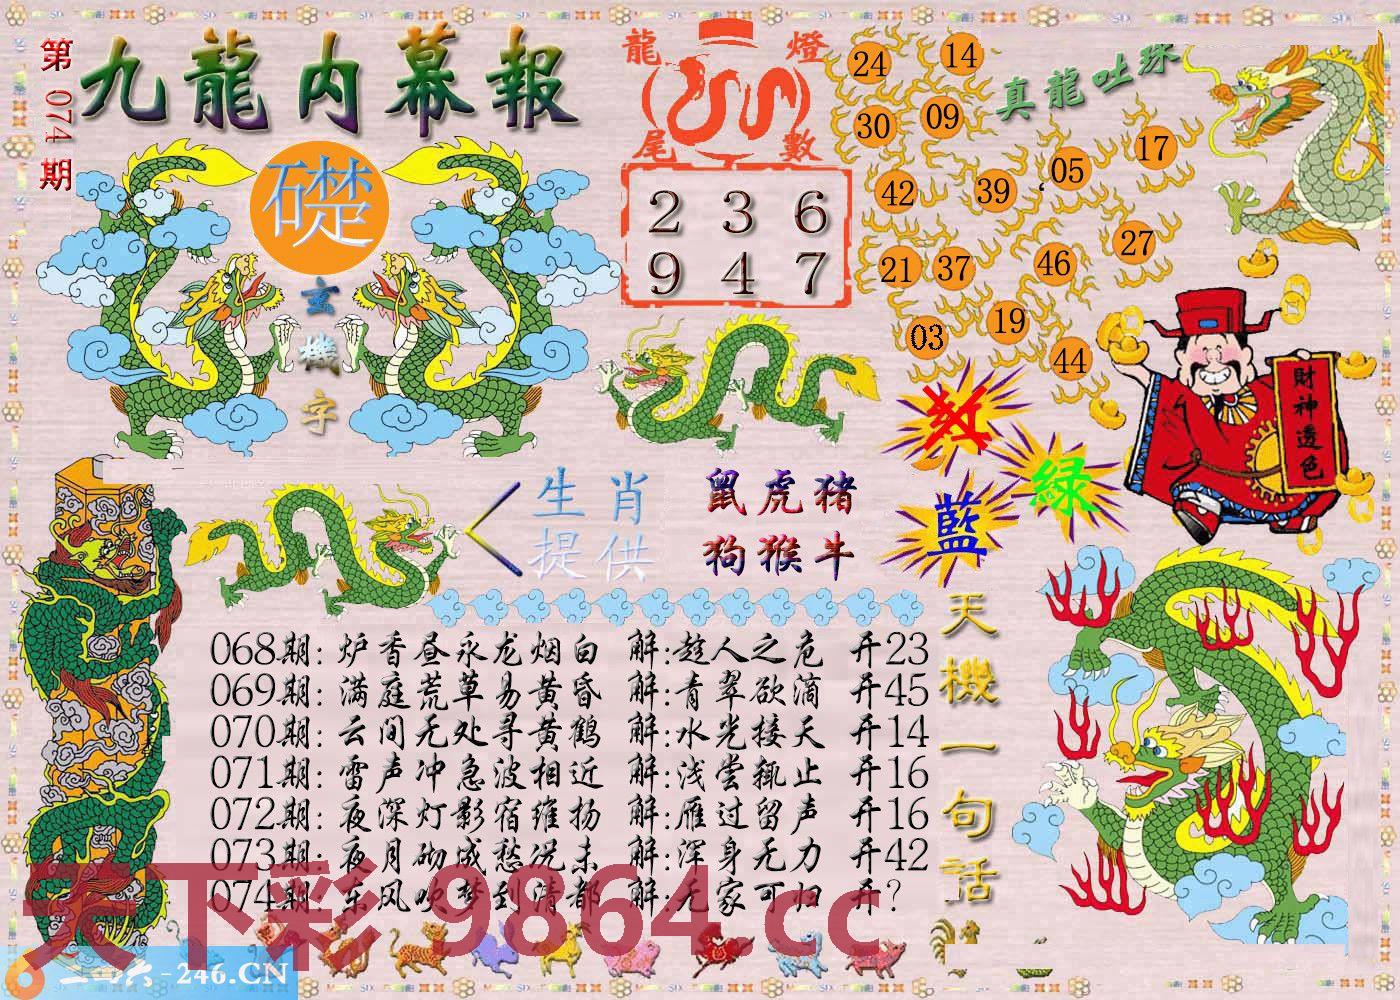 第074期
九龍内幕報
礎
玄機字
龍燈
尾數
2 3 6
9 4 7
真龍吐珠
24 14
30 09
42 39 05 17
21 37 46 27
03 19 44
財神透色
紅
綠
藍
生肖
提供
鼠虎猪
狗猴牛
068期: 炉香昼永龙烟白 解:趁人之危 开23
069期: 满庭荒草易黄昏 解:青翠欲滴 开45
070期: 云间无处寻黄鹤 解:水光接天 开14
071期: 雷声冲急波相近 解:浅尝辄止 开16
072期: 夜深灯影宿维扬 解:雁过留声 开16
073期: 夜月砌成愁况未 解:浑身无力 开42
074期: 东风吹梦到清都 解:无家可归 开?
天機一句話
天下彩 9864.cc
二四六-246.CN